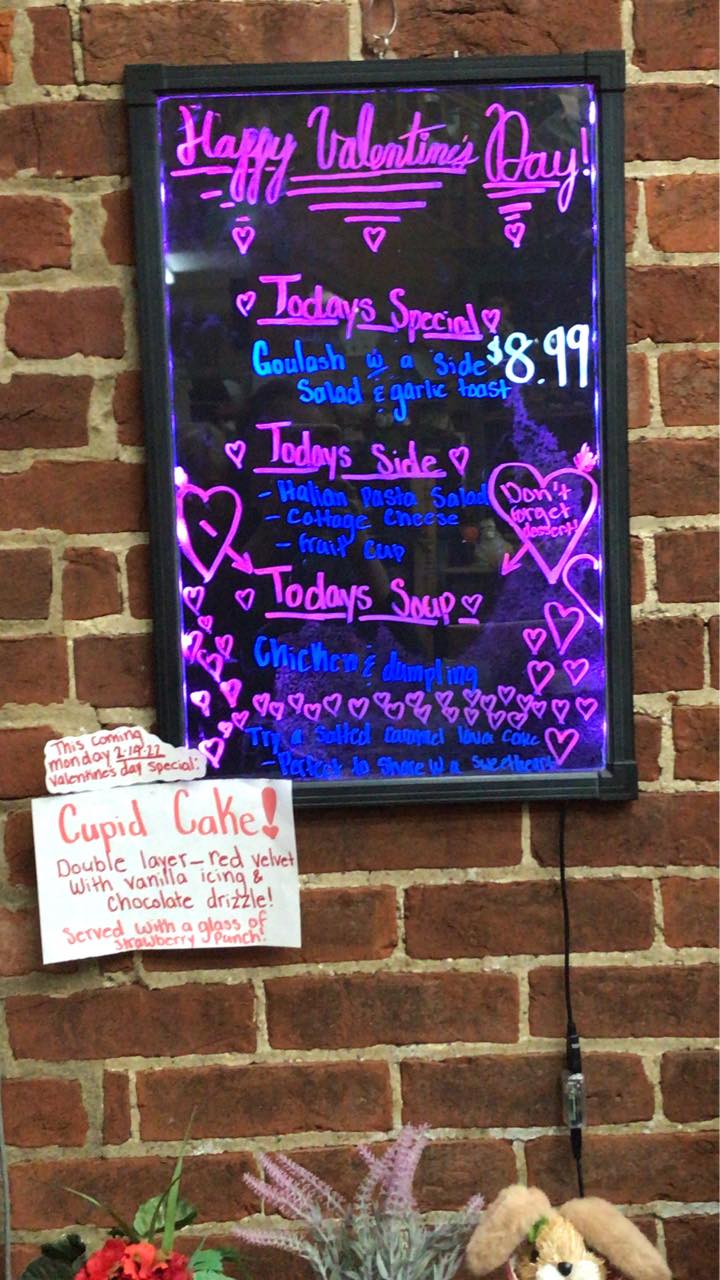 Happy Valentine's Day!
Todays Special
Goulash w/ a Side $8.99
Salad & garlic toast
Todays Side
- Italian Pasta Salad
- Cottage Cheese
- fruit cup
Don't
forget
dessert!
Todays Soup
Chicken & dumpling
Try a Salted Caramel lava cake
- Perfect to Share w/ a Sweetheart
This coming
monday 2-14-22
Valentine's day Special:
Cupid Cake!
Double layer—red velvet
With vanilla icing &
chocolate drizzle!
Served with a glass of
Strawberry Punch!